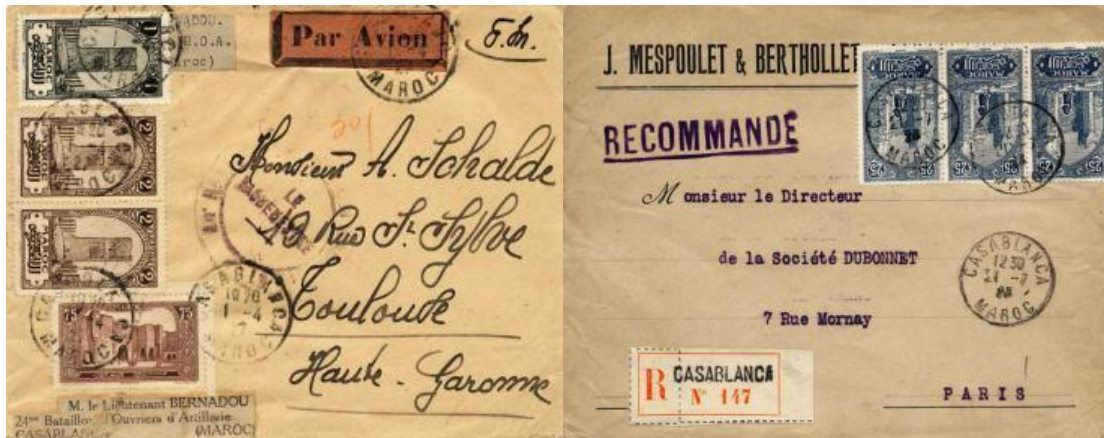 ADOU.
H.O.A.
aroc)
Par Avion
F.M.
MAROC
MAROC
Monsieur A. Schalde
LE
19 Rue St Sylve
Toulouse
Haute-Garonne
MAROC
2
MAROC
2
CASABLANCA
1-4
MAROC
75
M. le Lieutenant BERNADOU
24me Bataillon d'Ouvriers d'Artillerie
CASABLAN
(MAROC)
J. MESPOULET & BERTHOLLET
RECOMMANDÉ
MAROC
25
25
25
Monsieur le Directeur
de la Société DUBONNET
7 Rue Mornay
PARIS
CASABLANCA
1230
21 -7
MAROC
R
CASABLANCA
N° 147